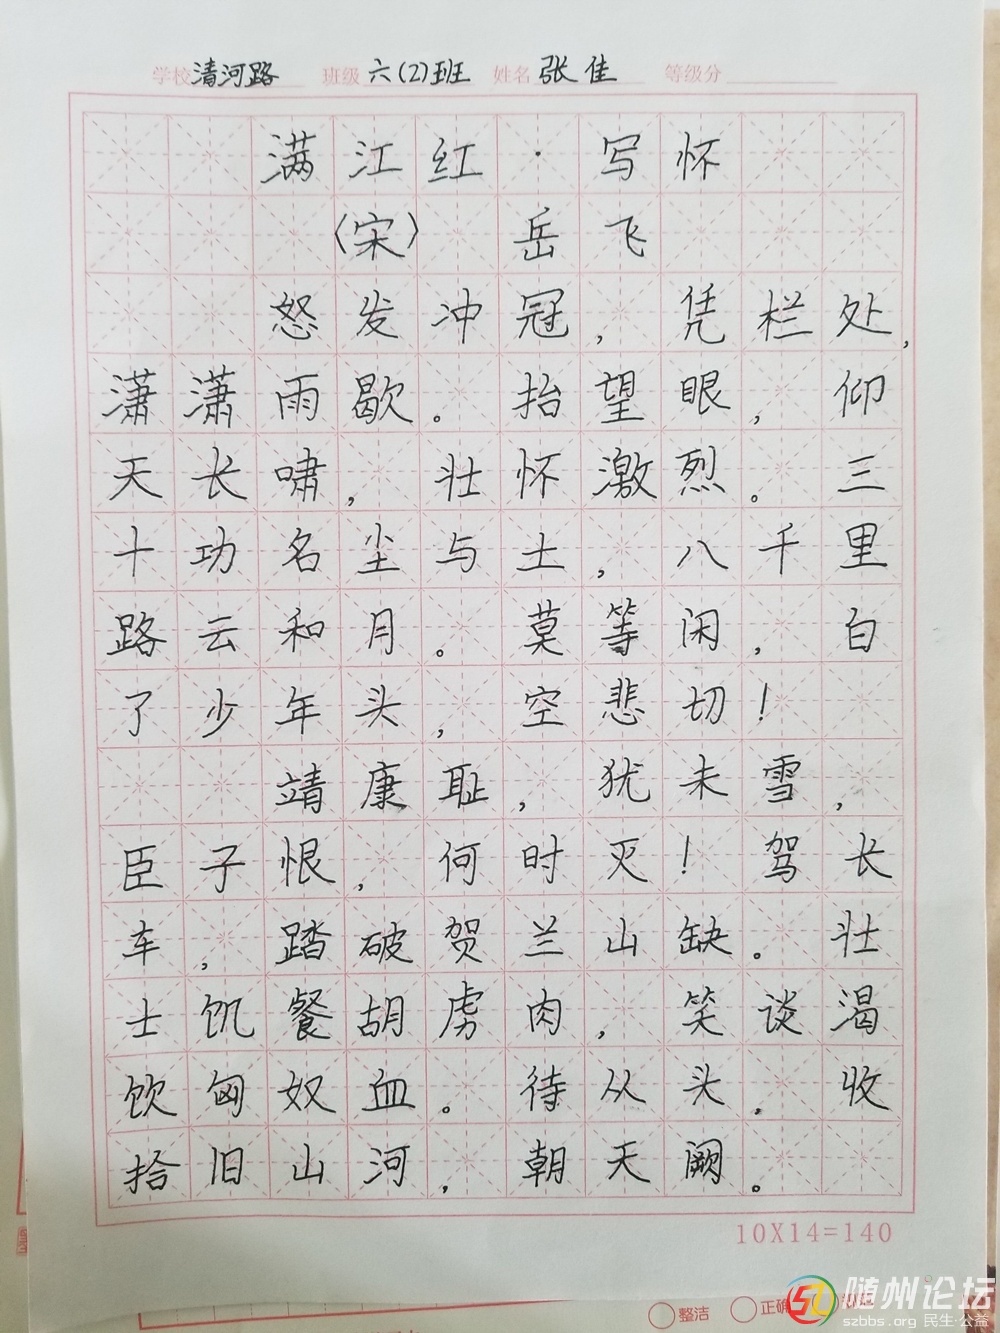 学校 清河路 班级 六(2)班 姓名 张佳 等级分
满江红·写怀
〈宋〉 岳飞
怒发冲冠，凭栏处，
潇潇雨歇。抬望眼，仰
天长啸，壮怀激烈。三
十功名尘与土，八千里
路云和月。莫等闲，白
了少年头，空悲切！
靖康耻，犹未雪，
臣子恨，何时灭！驾长
车，踏破贺兰山缺。壮
士饥餐胡虏肉，笑谈渴
饮匈奴血。待从头，收
拾旧山河，朝天阙。
10X14=140
整洁 正确
随州论坛
szbbs.org 民生·公益